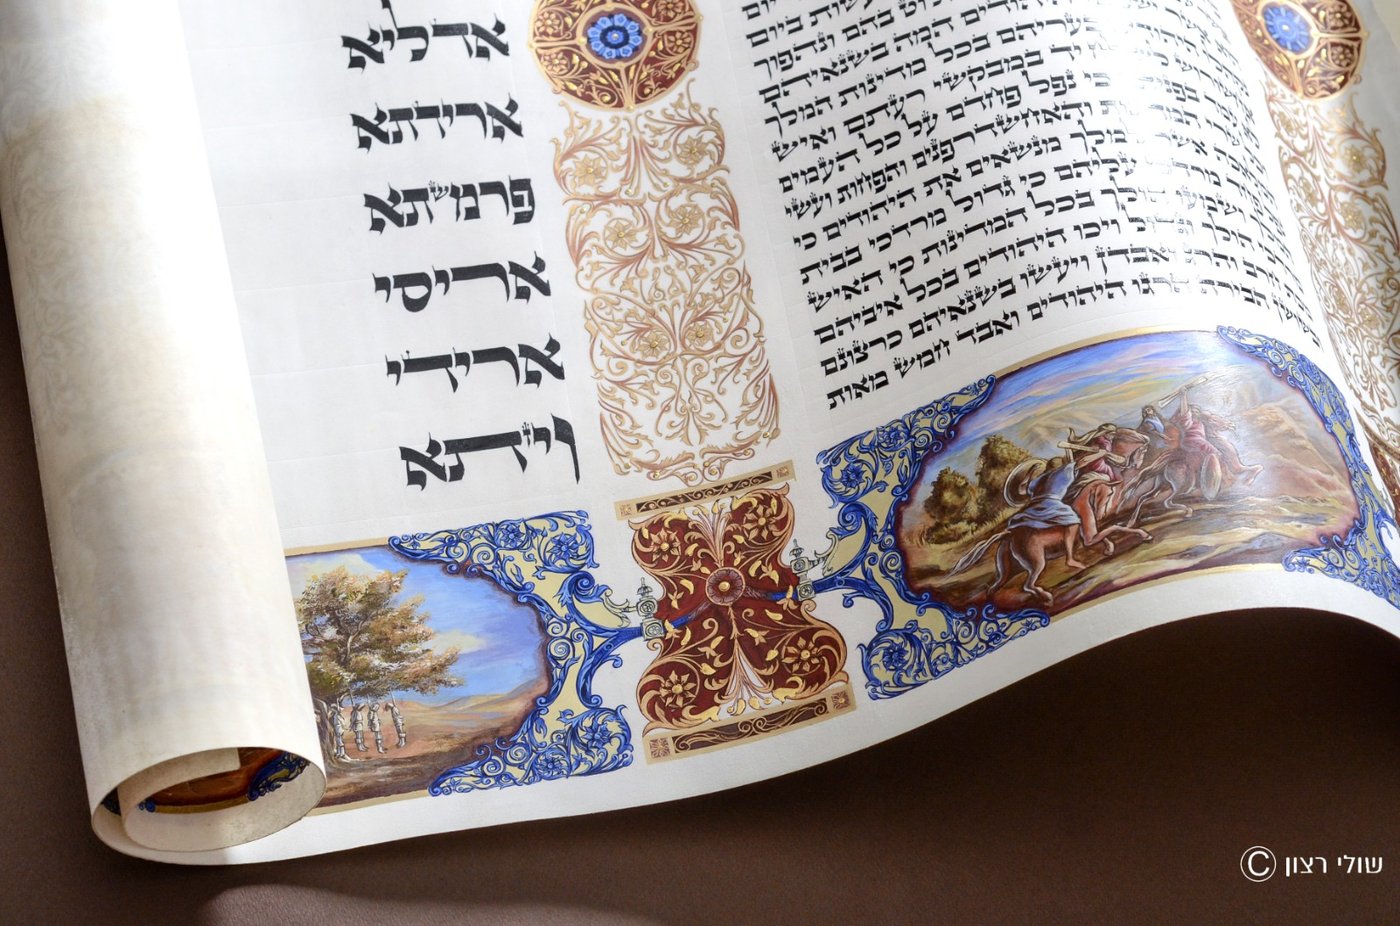 ביום
לעשות ביום
בהם ונהפוך
היהודים המה בשנאיהם
בעריהם בכל מדינות המלך
יד במבקשי רעתם ואיש
כי נפל פחדם על כל העמים
והאחשדרפנים והפחות ועשי
אשר למלך מנשאים את היהודים כי
מרדכי עליהם כי גדול מרדכי בבית
ושמעו הולך בכל המדינות כי האיש
הולך וגדול ויכו היהודים בכל איביהם
חרב והרג ואבדן ויעשו בשנאיהם כרצונם
ובשושן הבירה הרגו היהודים ואבד חמש מאות
אדליא
ארידתא
פרמשתא
אריסי
ארידי
ויזתא
© שולי רצון